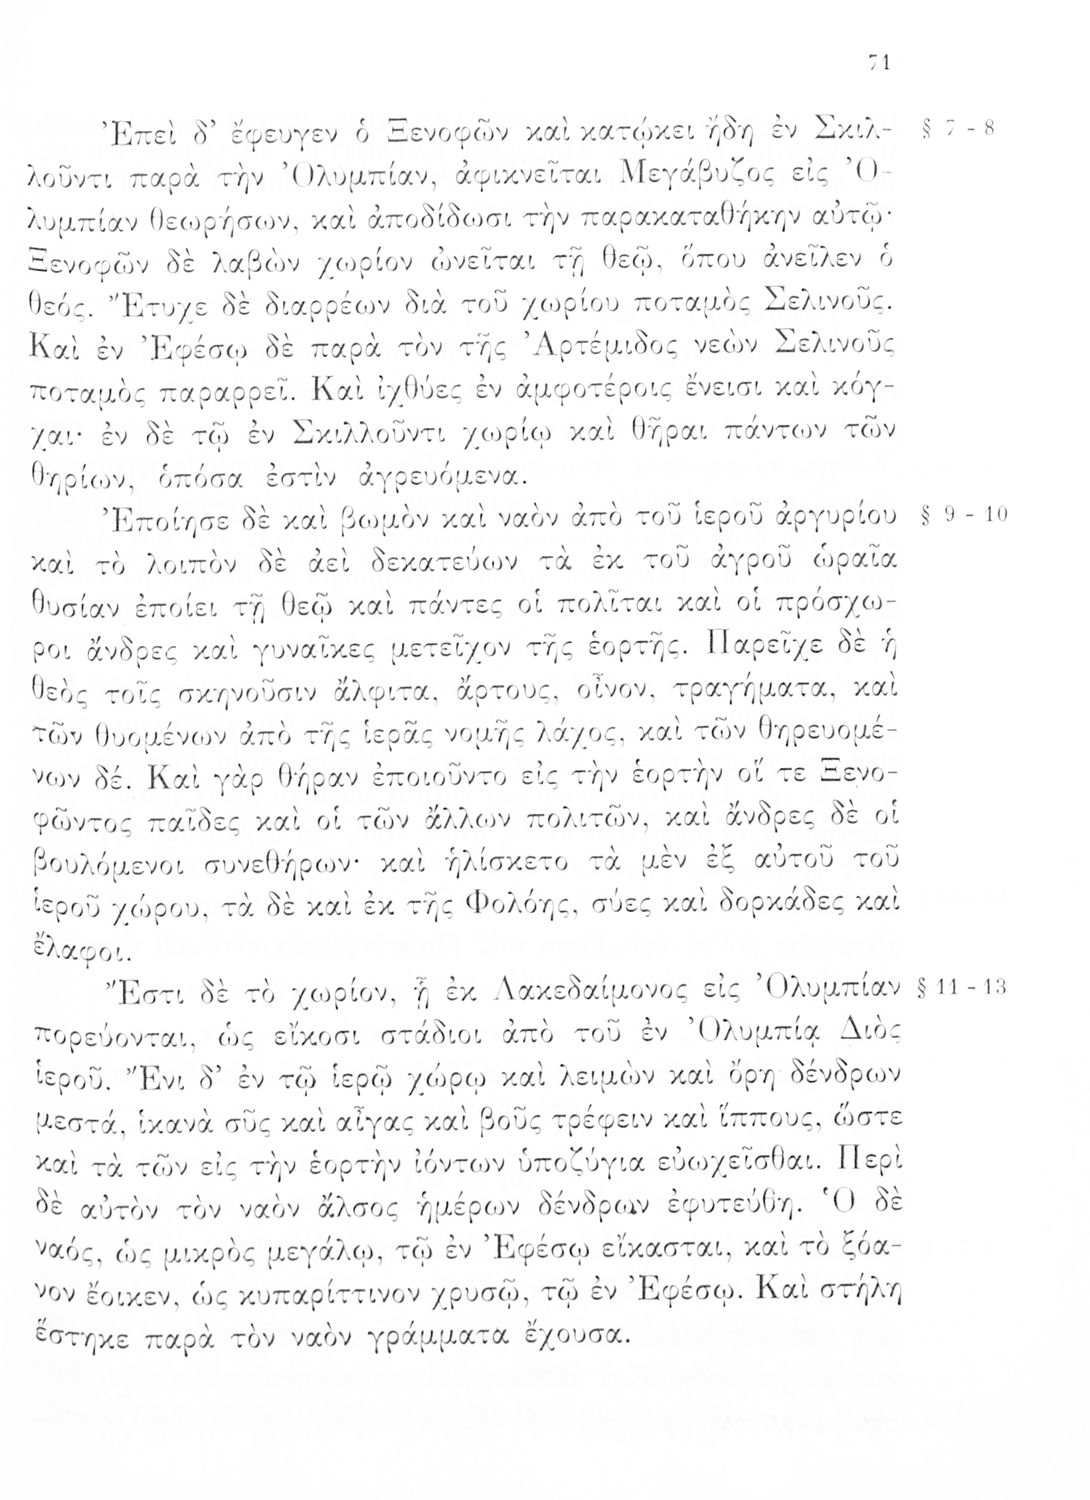 71
Ἐπεὶ δ’ ἔφευγεν ὁ Ξενοφῶν καὶ κατῴκει ἤδη ἐν Σκιλ- § 7 - 8
λοῦντι παρὰ τὴν Ὀλυμπίαν, ἀφικνεῖται Μεγάβυζος εἰς Ὀ-
λυμπίαν θεωρήσων, καὶ ἀποδίδωσι τὴν παρακαταθήκην αὐτῷ·
Ξενοφῶν δὲ λαβὼν χωρίον ὠνεῖται τῇ θεῷ, ὅπου ἀνεῖλεν ὁ
θεός. Ἔτυχε δὲ διαρρέων διὰ τοῦ χωρίου ποταμὸς Σελινοῦς.
Καὶ ἐν Ἐφέσῳ δὲ παρὰ τὸν τῆς Ἀρτέμιδος νεὼν Σελινοῦς
ποταμὸς παραρρεῖ. Καὶ ἰχθύες ἐν ἀμφοτέροις ἔνεισι καὶ κόγ-
χαι· ἐν δὲ τῷ ἐν Σκιλλοῦντι χωρίῳ καὶ θῆραι πάντων τῶν
θηρίων, ὁπόσα ἐστὶν ἀγρευόμενα.
Ἐποίησε δὲ καὶ βωμὸν καὶ ναὸν ἀπὸ τοῦ ἱεροῦ ἀργυρίου § 9 - 10
καὶ τὸ λοιπὸν δὲ ἀεὶ δεκατεύων τὰ ἐκ τοῦ ἀγροῦ ὡραῖα
θυσίαν ἐποίει τῇ θεῷ καὶ πάντες οἱ πολῖται καὶ οἱ πρόσχω-
ροι ἄνδρες καὶ γυναῖκες μετεῖχον τῆς ἑορτῆς. Παρεῖχε δὲ ἡ
θεὸς τοῖς σκηνοῦσιν ἄλφιτα, ἄρτους, οἶνον, τραγήματα, καὶ
τῶν θυομένων ἀπὸ τῆς ἱερᾶς νομῆς λάχος, καὶ τῶν θηρευομέ-
νων δέ. Καὶ γὰρ θήραν ἐποιοῦντο εἰς τὴν ἑορτὴν οἵ τε Ξενο-
φῶντος παῖδες καὶ οἱ τῶν ἄλλων πολιτῶν, καὶ ἄνδρες δὲ οἱ
βουλόμενοι συνεθήρων· καὶ ἡλίσκετο τὰ μὲν ἐξ αὐτοῦ τοῦ
ἱεροῦ χώρου, τὰ δὲ καὶ ἐκ τῆς Φολόης, σύες καὶ δορκάδες καὶ
ἔλαφοι.
Ἔστι δὲ τὸ χωρίον, ᾗ ἐκ Λακεδαίμονος εἰς Ὀλυμπίαν § 11 - 13
πορεύονται, ὡς εἴκοσι στάδιοι ἀπὸ τοῦ ἐν Ὀλυμπίᾳ Διὸς
ἱεροῦ. Ἔνι δ’ ἐν τῷ ἱερῷ χώρῳ καὶ λειμὼν καὶ ὄρη δένδρων
μεστά, ἱκανὰ σῦς καὶ αἶγας καὶ βοῦς τρέφειν καὶ ἵππους, ὥστε
καὶ τὰ τῶν εἰς τὴν ἑορτὴν ἰόντων ὑποζύγια εὐωχεῖσθαι. Περὶ
δὲ αὐτὸν τὸν ναὸν ἄλσος ἡμέρων δένδρων ἐφυτεύθη. Ὁ δὲ
ναός, ὡς μικρὸς μεγάλῳ, τῷ ἐν Ἐφέσῳ εἴκασται, καὶ τὸ ξόα-
νον ἔοικεν, ὡς κυπαρίττινον χρυσῷ, τῷ ἐν Ἐφέσῳ. Καὶ στήλη
ἕστηκε παρὰ τὸν ναὸν γράμματα ἔχουσα.